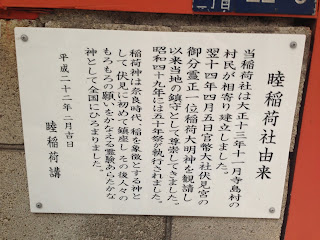 睦稲荷社由来
当稲荷社は大正十三年十一月寺島村の
村民が相寄り建立しました。
翌十四年四月五日官幣大社伏見宮の
御分霊正一位稲荷大明神を観請し
以来当地の鎮守として尊崇してきました。
昭和四十九年には五十年祭が執行されました。
稲荷神は奈良時代、稲を象徴とする神と
して、伏見に初めて鎮座し その後人々の
もろもろの願いをかなえる霊験あらたかな
神として全国にひろまりました。
平成二十二年二月吉日
睦稲荷講
丁目